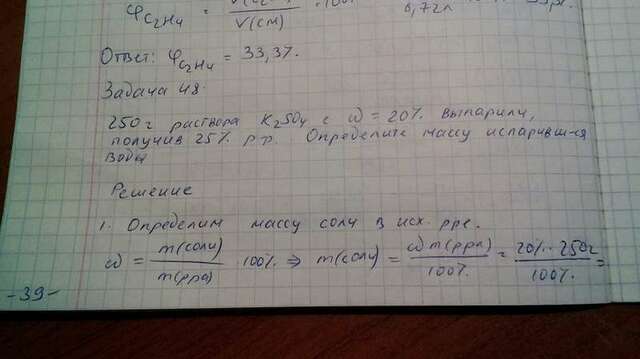 φC₂H₄ = / V(см) · 100% 6,72л
Ответ: φC₂H₄ = 33,3%.
Задача 48.
250г раствора K₂SO₄ с ω = 20% выпарили,
получив 25% р.р. Определите массу испарившися
воды
Решение
1. Определим массу соли в исх. рре.
ω = m(соли) / m(рра) 100% ⇒ m(соли) = ω m(рра) / 100% = 20% · 250г / 100% =
-39-